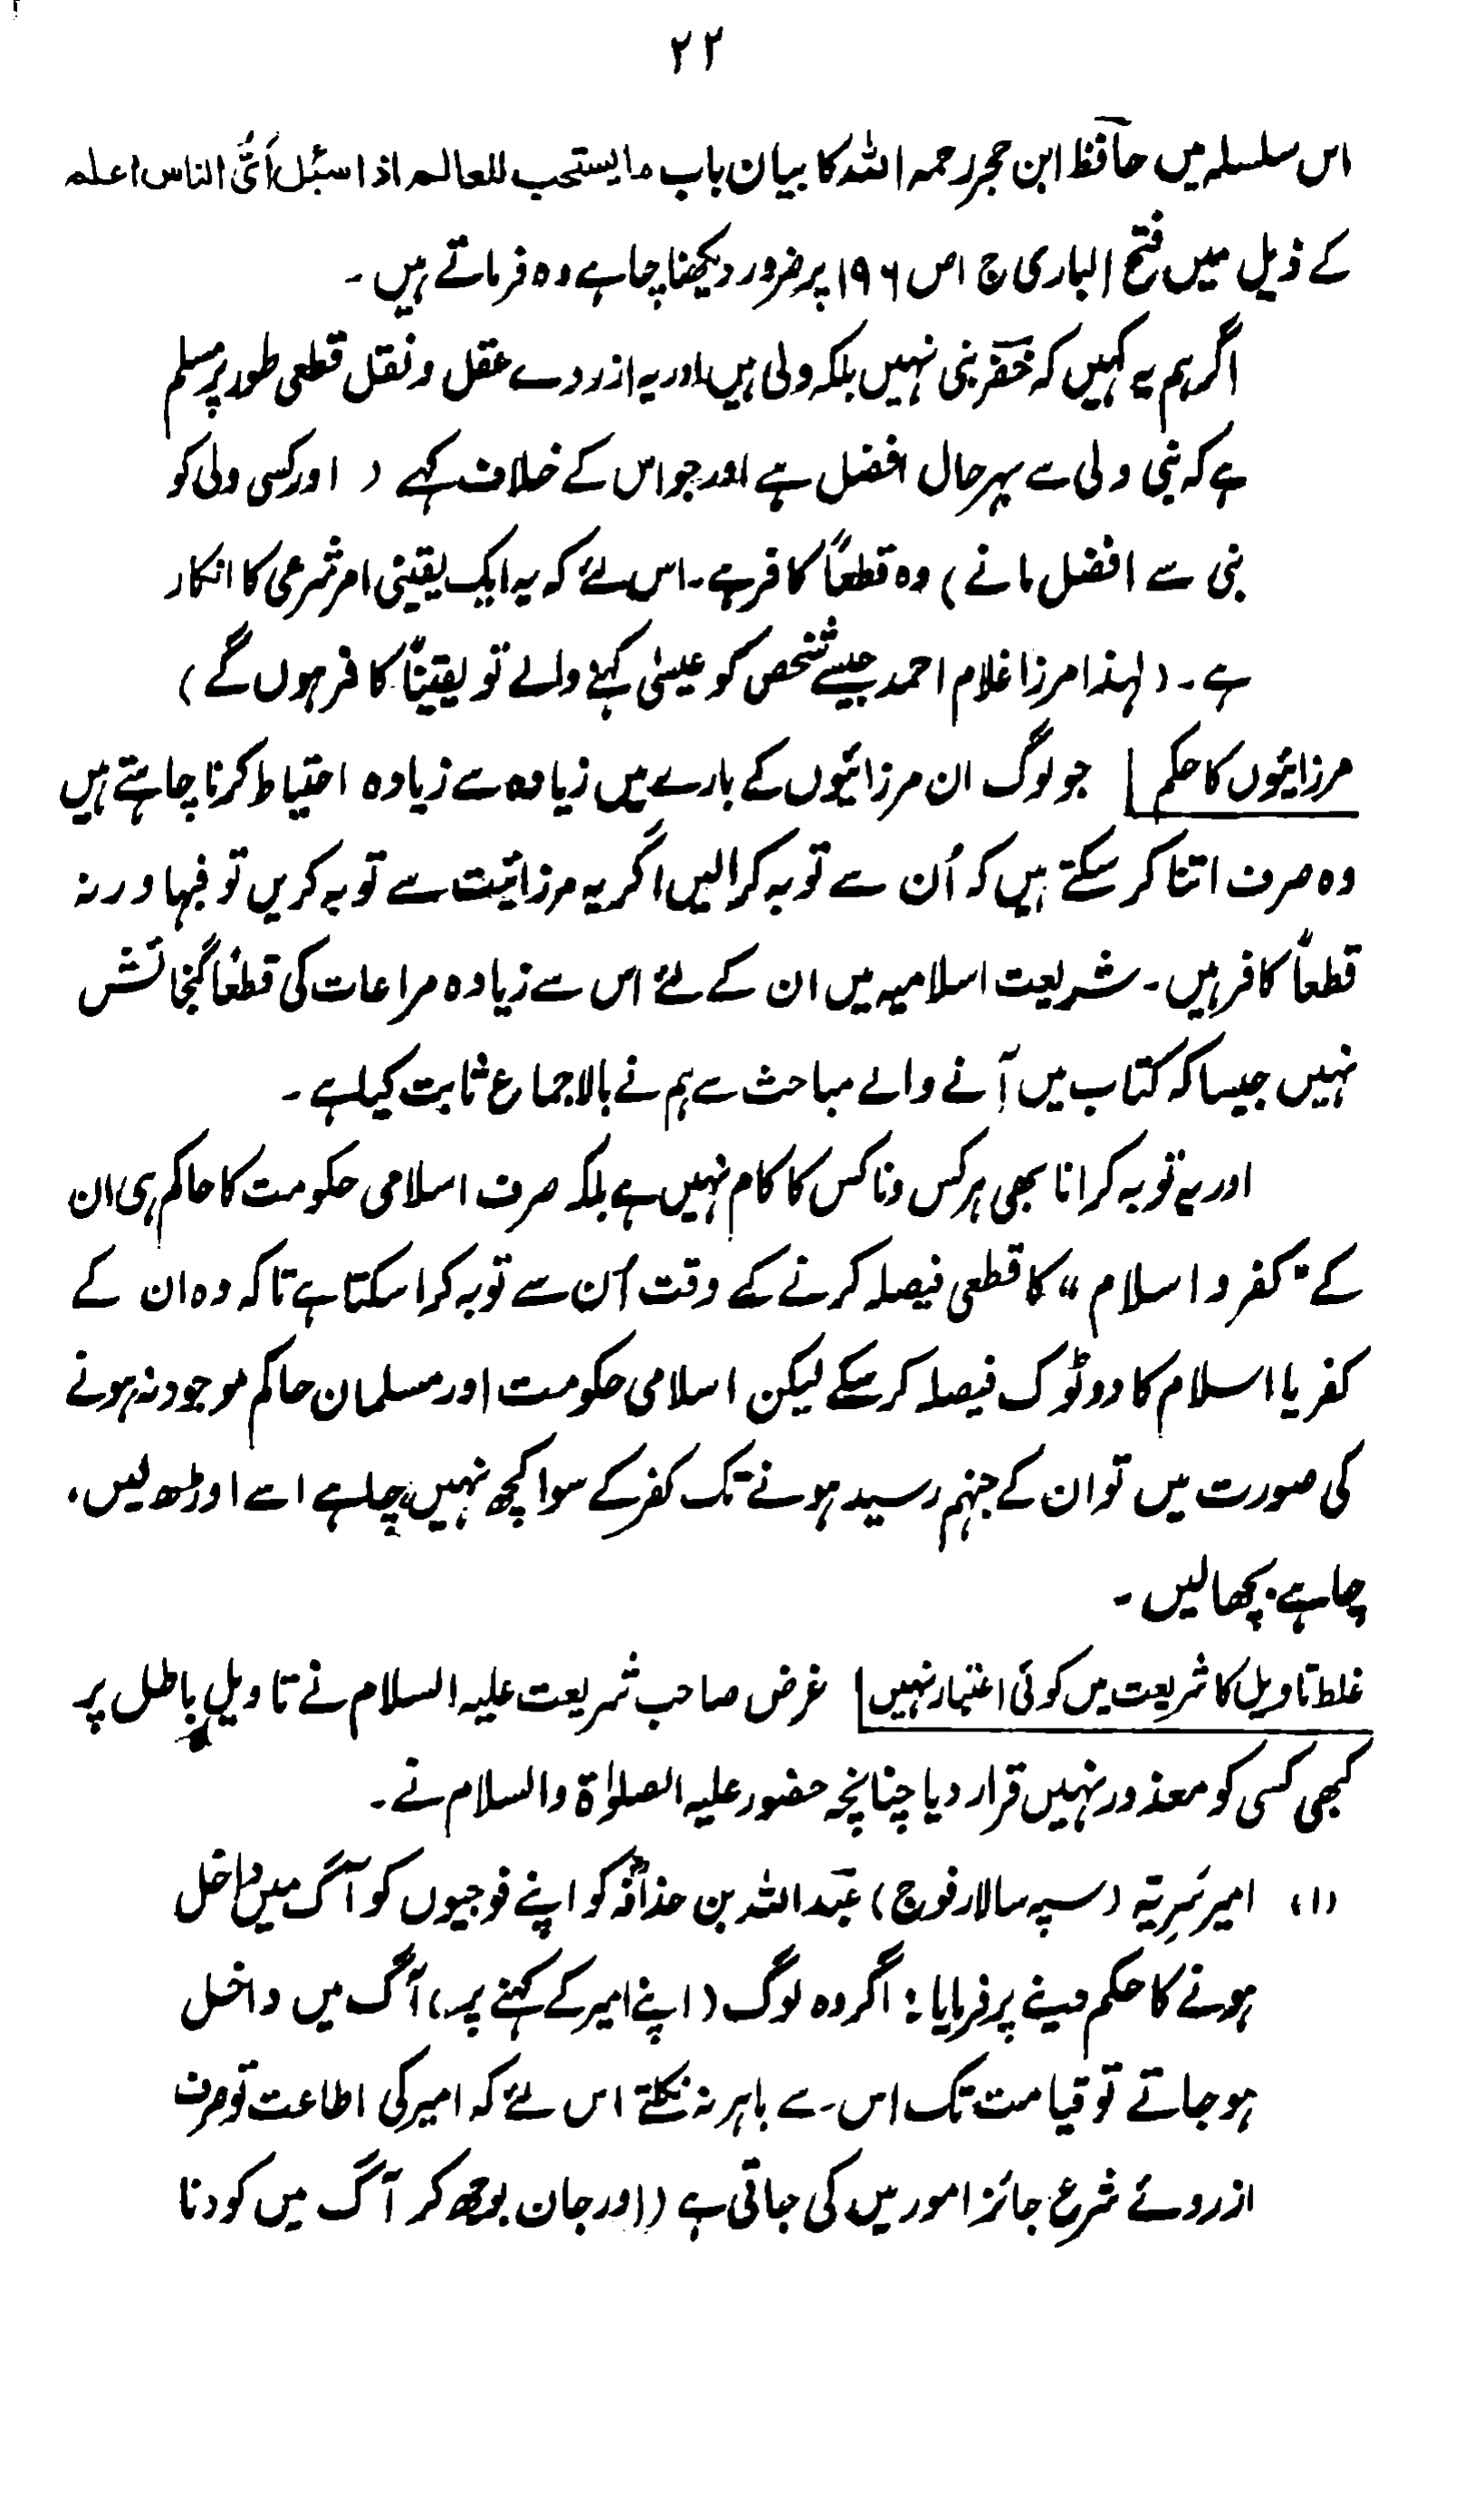 ۲۲
اس سلسلہ میں حافظ ابن حجر رحمہ اللہ کا بیان باب ما یستحب للعالم اذا سئل أیّ الناس اعلم
کے ذیل میں فتح الباری ج ۱ ص ۱۹۶ پر ضرور دیکھنا چاہے وہ فرماتے ہیں ۔
اگر ہم یہ کہیں کہ خضر نبی نہیں بلکہ ولی ہیں اور یہ ازروے عقل و نقل قطعی طور پر مسلم
ہے کہ نبی ولی سے بہرحال افضل ہے اور جو اس کے خلاف کہے ( اور کسی ولی کو
نبی سے افضل مانے ) وہ قطعاً کافر ہے ۔ اس لئے کہ یہ ایک یقینی امر شرعی کا انکار
ہے ۔ (لہٰذا مرزا غلام احمد جیسے شخص کو عیسیٰ کہنے والے تو یقیناً کافر ہوں گے )
مرزائیوں کا حکم | جو لوگ ان مرزائیوں کے بارے میں زیادہ سے زیادہ احتیاط کرنا چاہتے ہیں
وہ صرف اتنا کر سکتے ہیں کہ اُن سے توبہ کرالیں اگر یہ مرزائیت سے توبہ کریں تو فبہا ورنہ
قطعاً کافر ہیں ۔ شریعت اسلامیہ میں ان کے لئے اس سے زیادہ مراعات کی قطعاً گنجائش
نہیں جیسا کہ کتاب میں آنے والے مباحث سے ہم نے بالاجماع ثابت کیا ہے ۔
اور یہ توبہ کرانا بھی ہر کس و ناکس کا کام نہیں ہے بلکہ صرف اسلامی حکومت کا حاکم ہی ان
کے "کفر و اسلام" کا قطعی فیصلہ کرنے کے وقت اُن سے توبہ کرا سکتا ہے تاکہ وہ ان کے
کفر یا اسلام کا دو ٹوک فیصلہ کر سکے لیکن اسلامی حکومت اور مسلمان حاکم موجود نہ ہونے
کی صورت میں تو ان کے جہنم رسید ہونے تک کفر کے سوا کچھ نہیں، چاہے اسے اوڑھ لیں،
چاہے بچھالیں ۔
غلط تاویل کا شریعت میں کوئی اعتبار نہیں | غرض صاحب شریعت علیہ السلام نے تاویل باطل پر
کبھی کسی کو معذور نہیں قرار دیا چنانچہ حضور علیہ الصلوٰۃ والسلام نے ۔
(۱) امیر سَرِیّہ (سپہ سالار فوج) عبداللہ بن حذافہؓ کو اپنے فوجیوں کو آگ میں داخل
ہونے کا حکم دینے پر فرمایا : اگر وہ لوگ (اپنے امیر کے کہنے پر) آگ میں داخل
ہو جاتے تو قیامت تک اس سے باہر نہ نکلتے اس لئے کہ امیر کی اطاعت تو صرف
ازروئے شرع جائز امور میں کی جاتی ہے (اور جان بوجھ کر آگ میں کودنا